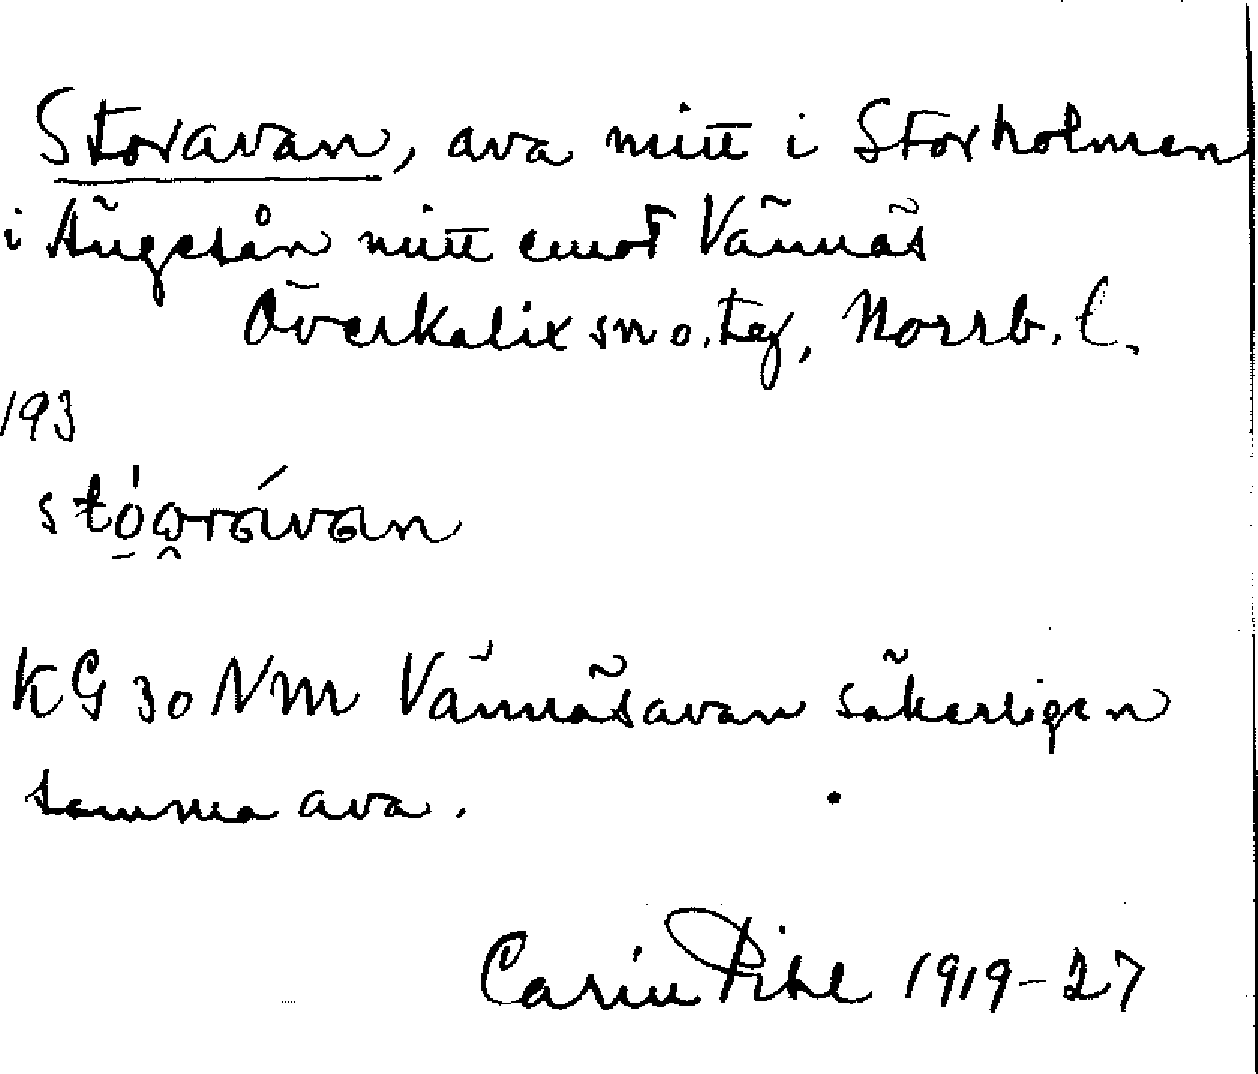 Storavan, ava mitt i Storholmen
i Ängesån mitt emot Vännäs
Överkalix sn o. tg, Norrb. l.
193
stó̱ɷ̯rávan
KG 30 NM Vännäsavan säkerligen
samma ava.
Carin Pihl 1919-27